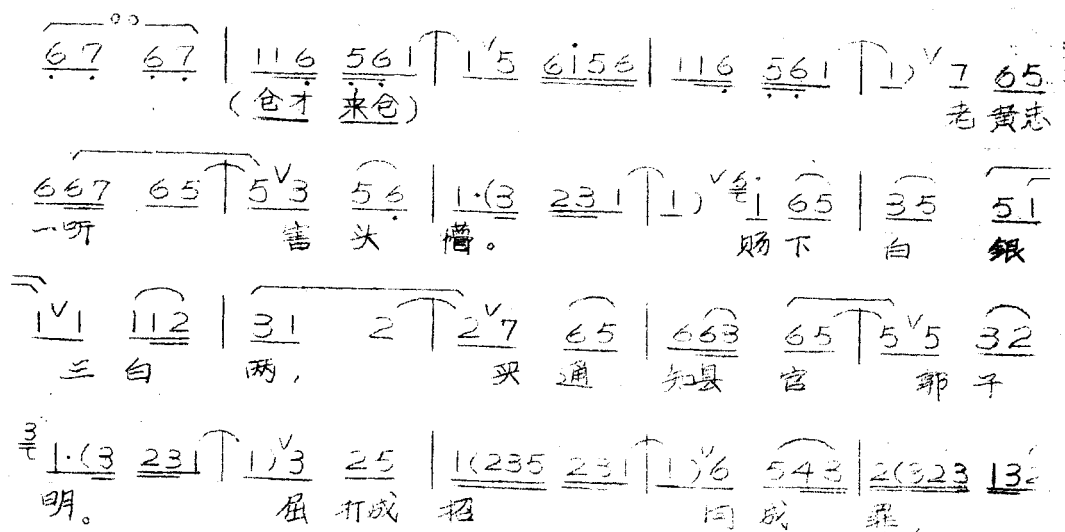 6 7 6 7 | 1 1 6 5 6 1 | 1 ∨ 5 6 i 5 6 | 1 1 6 5 6 1 | 1 ) ∨ 7 6 5
(仓才 来仓) 老 黄志
6 6 7 6 5 | 5 ∨ 3 5 6 | 1 · ( 3 2 3 1 | 1 ) ∨ i 6 5 | 3 5 5 1
一听 害 头 懵。 赐 下 白 銀
1 ∨ 1 1 1 2 | 3 1 2 | 2 ∨ 7 6 5 | 6 6 3 6 5 | 5 ∨ 5 3 2
三 白 两, 买 通 知县 官 郭 子
3 1 · ( 3 2 3 1 | 1 ) ∨ 3 2 5 | 1 ( 2 3 5 2 3 1 | 1 ) ∨ 6 5 4 3 | 2 ( 3 2 3 1 3 2
明。 屈 打成 招 问 成 罪,